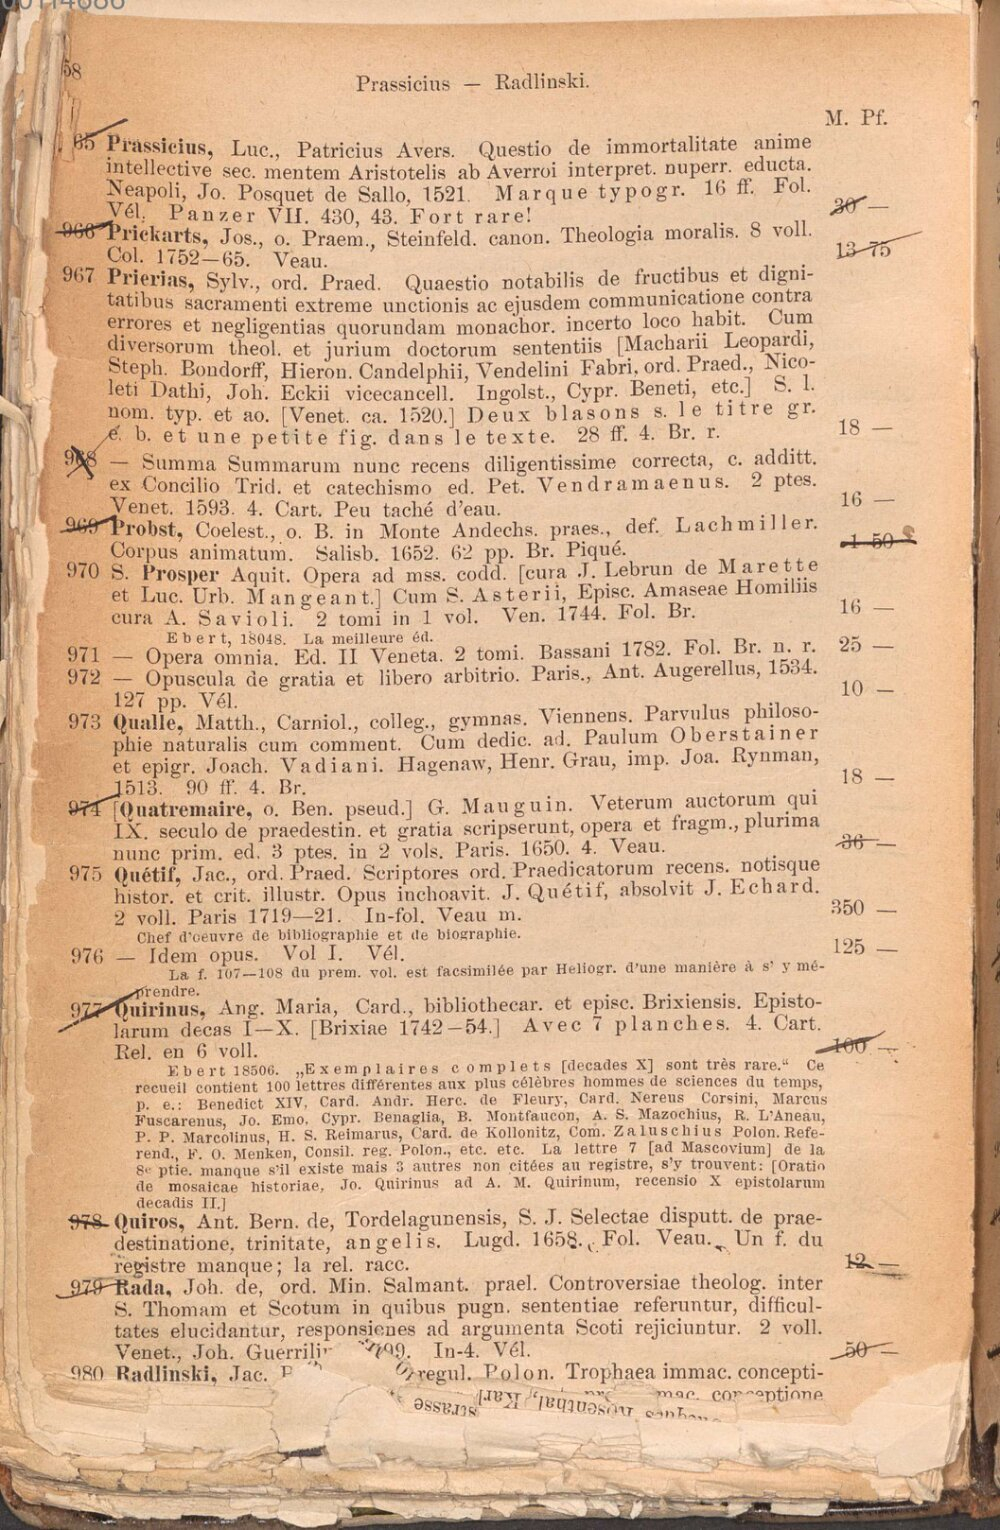 00114686
58
Prassicius — Radlinski.
M. Pf.
65 Prassicius, Luc., Patricius Avers. Questio de immortalitate anime
intellective sec. mentem Aristotelis ab Averroi interpret. nuperr. educta.
Neapoli, Jo. Posquet de Sallo, 1521. Marque typogr. 16 ff. Fol.
Vél. Panzer VII. 430, 43. Fort rare! 30 —
966 Prickarts, Jos., o. Praem., Steinfeld. canon. Theologia moralis. 8 voll.
Col. 1752—65. Veau. 13 75
967 Prierias, Sylv., ord. Praed. Quaestio notabilis de fructibus et digni-
tatibus sacramenti extreme unctionis ac ejusdem communicatione contra
errores et negligentias quorundam monachor. incerto loco habit. Cum
diversorum theol. et jurium doctorum sententiis [Macharii Leopardi,
Steph. Bondorff, Hieron. Candelphii, Vendelini Fabri, ord. Praed., Nico-
leti Dathi, Joh. Eckii vicecancell. Ingolst., Cypr. Beneti, etc.] S. l.
nom. typ. et ao. [Venet. ca. 1520.] Deux blasons s. le titre gr.
e. b. et une petite fig. dans le texte. 28 ff. 4. Br. r. 18 —
968 — Summa Summarum nunc recens diligentissime correcta, c. additt.
ex Concilio Trid. et catechismo ed. Pet. Vendramaenus. 2 ptes.
Venet. 1593. 4. Cart. Peu taché d'eau. 16 —
969 Probst, Coelest., o. B. in Monte Andechs. praes., def. Lachmiller.
Corpus animatum. Salisb. 1652. 62 pp. Br. Piqué. 1 50
970 S. Prosper Aquit. Opera ad mss. codd. [cura J. Lebrun de Marette
et Luc. Urb. Mangeant.] Cum S. Asterii, Episc. Amaseae Homiliis
cura A. Savioli. 2 tomi in 1 vol. Ven. 1744. Fol. Br. 16 —
Ebert, 18048. La meilleure éd.
971 — Opera omnia. Ed. II Veneta. 2 tomi. Bassani 1782. Fol. Br. n. r. 25 —
972 — Opuscula de gratia et libero arbitrio. Paris., Ant. Augerellus, 1534.
127 pp. Vél. 10 —
973 Qualle, Matth., Carniol., colleg., gymnas. Viennens. Parvulus philoso-
phie naturalis cum comment. Cum dedic. ad. Paulum Oberstainer
et epigr. Joach. Vadiani. Hagenaw, Henr. Grau, imp. Joa. Rynman,
1513. 90 ff. 4. Br. 18 —
974 [Quatremaire, o. Ben. pseud.] G. Mauguin. Veterum auctorum qui
IX. seculo de praedestin. et gratia scripserunt, opera et fragm., plurima
nunc prim. ed. 3 ptes. in 2 vols. Paris. 1650. 4. Veau. 36 —
975 Quétif, Jac., ord. Praed. Scriptores ord. Praedicatorum recens. notisque
histor. et crit. illustr. Opus inchoavit. J. Quétif, absolvit J. Echard.
2 voll. Paris 1719—21. In-fol. Veau m. 350 —
Chef d'oeuvre de bibliographie et de biographie.
976 — Idem opus. Vol I. Vél. 125 —
La f. 107—108 du prem. vol. est facsimilée par Heliogr. d'une manière à s' y mé-
prendre.
977 Quirinus, Ang. Maria, Card., bibliothecar. et episc. Brixiensis. Episto-
larum decas I—X. [Brixiae 1742—54.] Avec 7 planches. 4. Cart.
Rel. en 6 voll. 100 —
Ebert 18506. „Exemplaires complets [decades X] sont très rare.“ Ce
recueil contient 100 lettres différentes aux plus célèbres hommes de sciences du temps,
p. e.: Benedict XIV, Card. Andr. Herc. de Fleury, Card. Nereus Corsini, Marcus
Fuscarenus, Jo. Emo, Cypr. Benaglia, B. Montfaucon, A. S. Mazochius, R. L'Aneau,
P. P. Marcolinus, H. S. Reimarus, Card. de Kollonitz, Com. Zaluschius Polon. Refe-
rend., F. O. Menken, Consil. reg. Polon., etc. etc. La lettre 7 [ad Mascovium] de la
8e ptie. manque s'il existe mais 3 autres non citées au registre, s'y trouvent: [Oratio
de mosaicae historiae, Jo. Quirinus ad A. M. Quirinum, recensio X epistolarum
decadis II.]
978 Quiros, Ant. Bern. de, Tordelagunensis, S. J. Selectae disputt. de prae-
destinatione, trinitate, angelis. Lugd. 1658. Fol. Veau. Un f. du
registre manque; la rel. racc. 12 —
979 Rada, Joh. de, ord. Min. Salmant. prael. Controversiae theolog. inter
S. Thomam et Scotum in quibus pugn. sententiae referuntur, difficul-
tates elucidantur, responsienes ad argumenta Scoti rejiciuntur. 2 voll.
Venet., Joh. Guerrili 99. In-4. Vél. 50 —
980 Radlinski, Jac. regul. Polon. Trophaea immac. concepti-
conceptione
Rosenthal, Karl
strasse